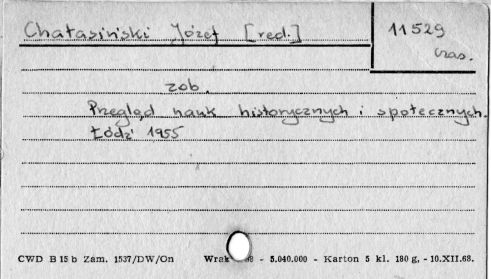 Chałasiński Józef [red.]
11529
czas.
zob.
Przegląd nauk historycznych i społecznych.
Łódź 1955
CWD B 15 b Zam. 1537/DW/On - 5.040.000 - Karton 5 kl. 180 g, - 10.XII.68.